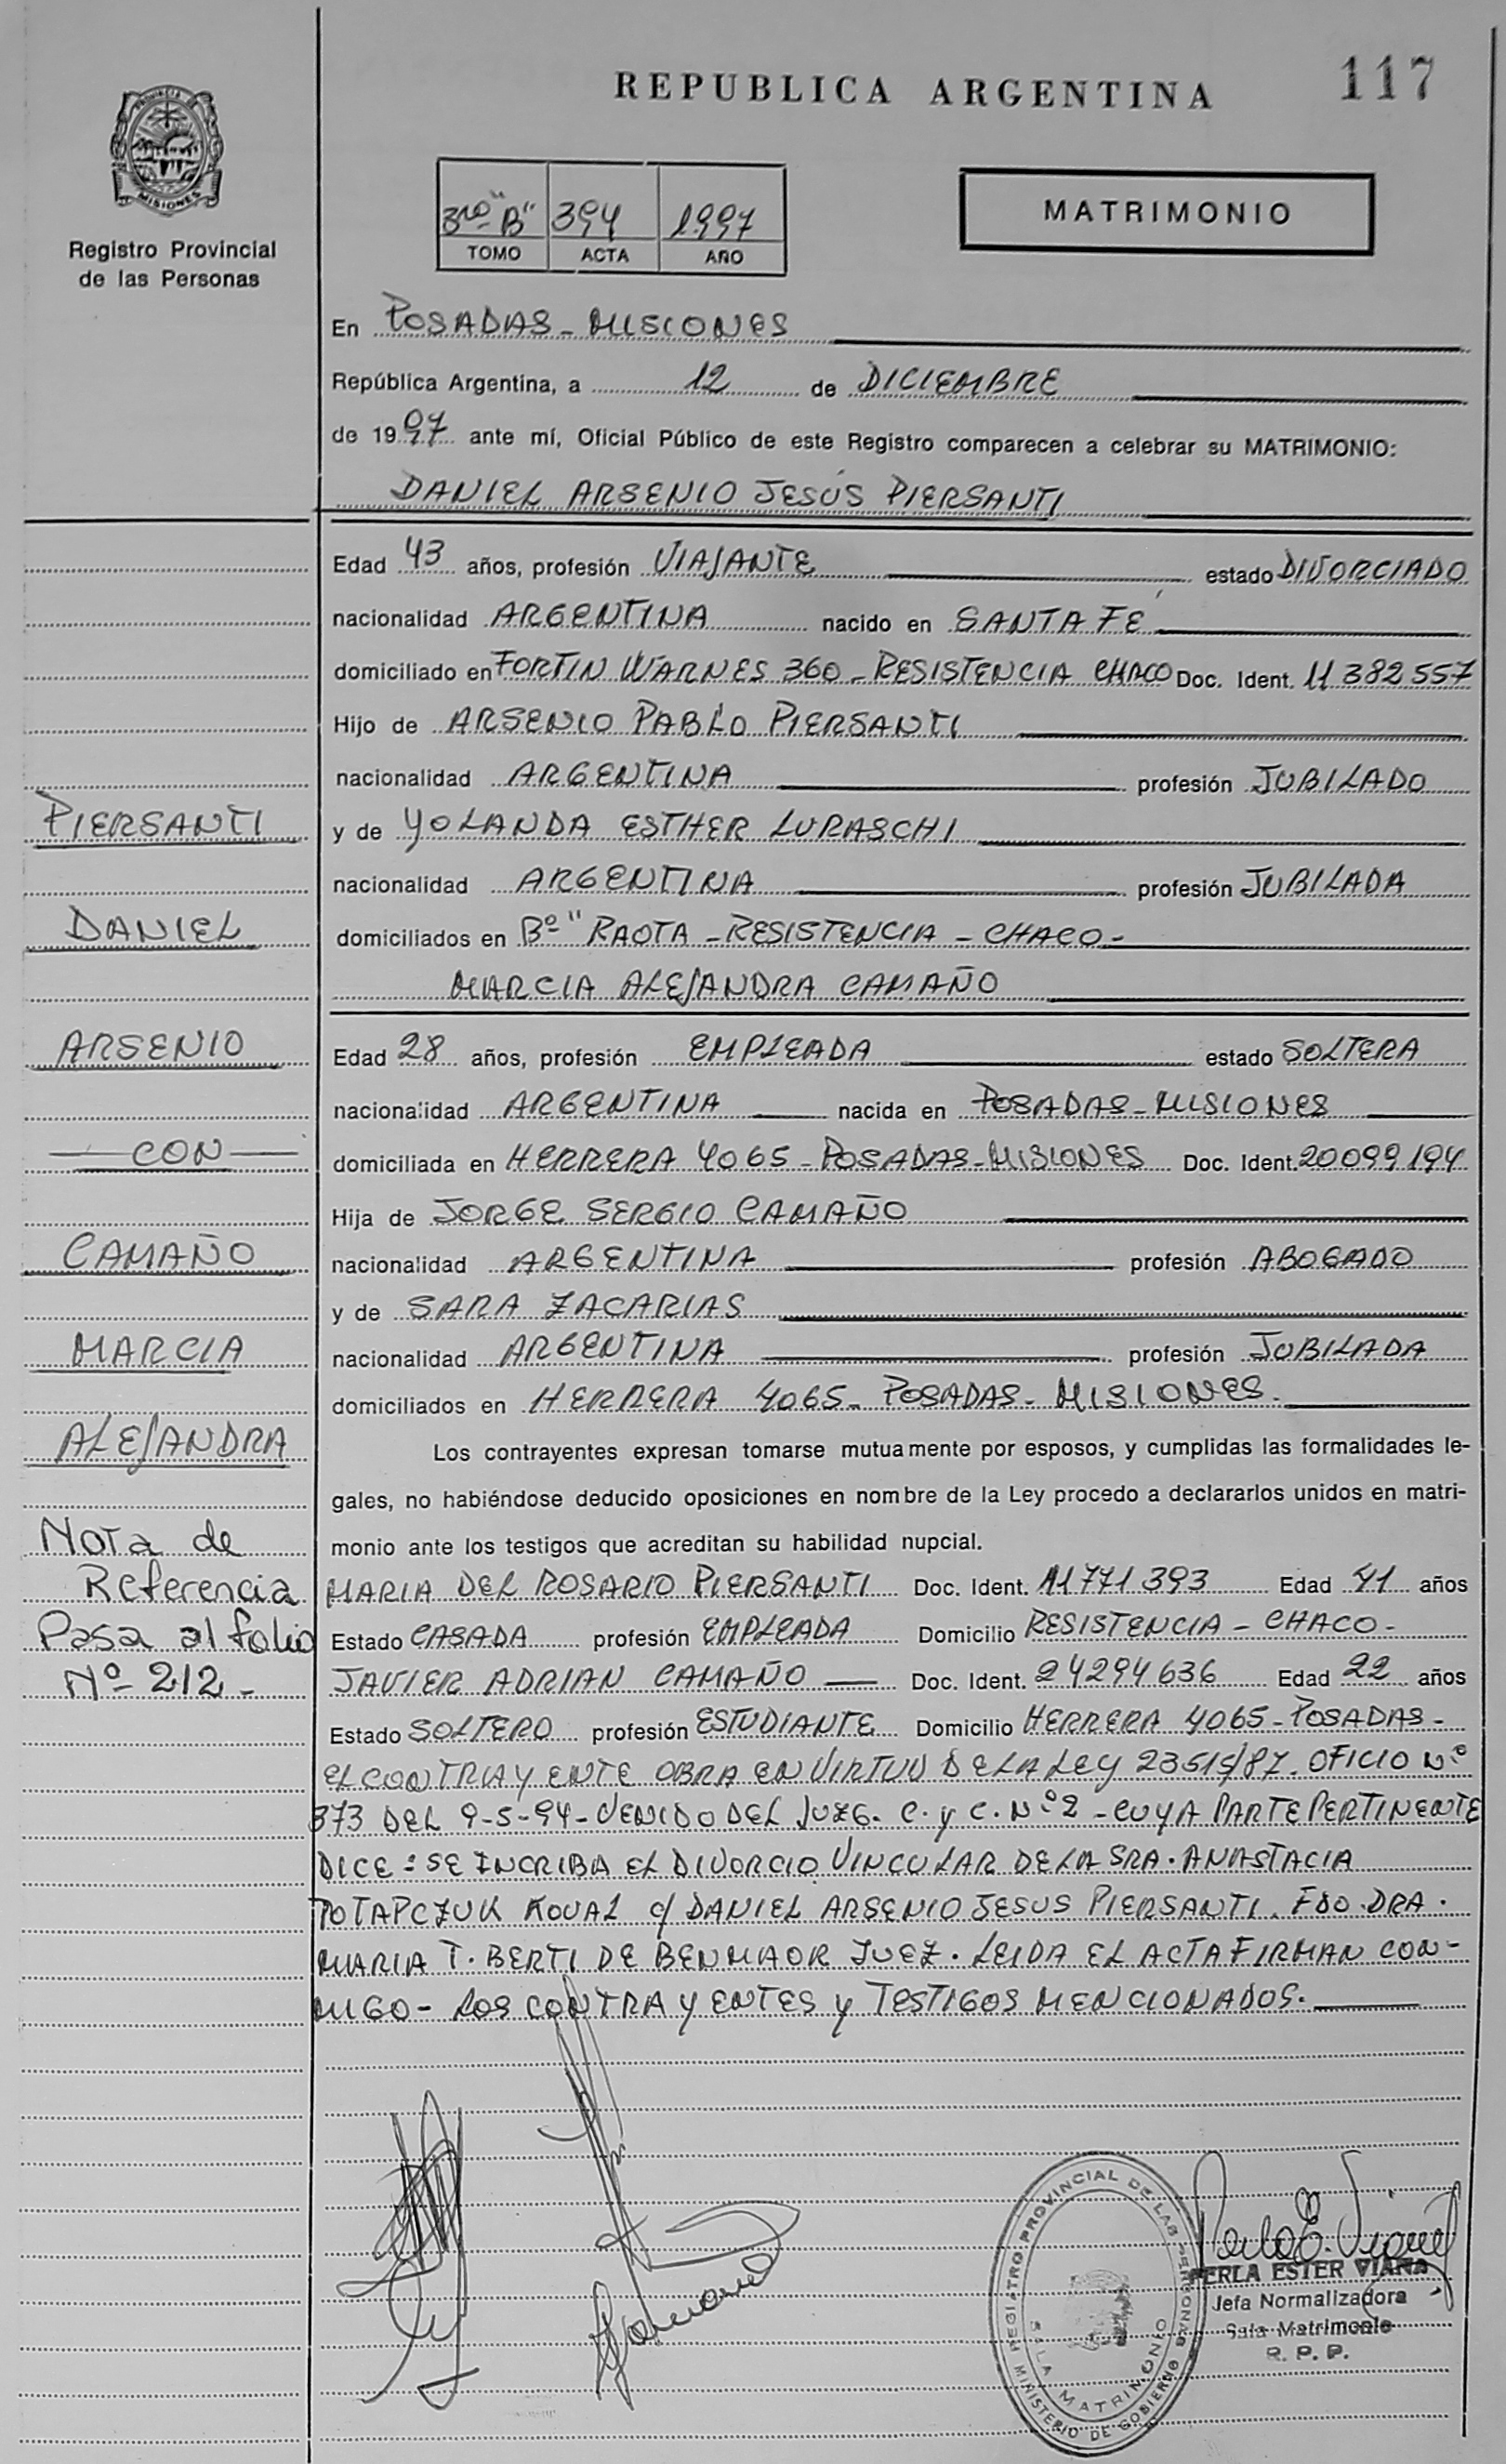 REPUBLICA ARGENTINA
117
PROVINCIA DE
MISIONES
Registro Provincial
de las Personas
3ro "B" 394 1997
TOMO ACTA AÑO
MATRIMONIO
En POSADAS - MISIONES
República Argentina, a 12 de DICIEMBRE
de 1997 ante mí, Oficial Público de este Registro comparecen a celebrar su MATRIMONIO:
DANIEL ARSENIO JESÚS PIERSANTI
Edad 43 años, profesión VIAJANTE estado DIVORCIADO
nacionalidad ARGENTINA nacido en SANTA FÉ
domiciliado en FORTIN WARNES 360 - RESISTENCIA CHACO Doc. Ident. 11 382 557
Hijo de ARSENIO PABLO PIERSANTI
nacionalidad ARGENTINA profesión JUBILADO
y de YOLANDA ESTHER LURASCHI
nacionalidad ARGENTINA profesión JUBILADA
domiciliados en Bº "RAOTA - RESISTENCIA - CHACO -
MARCIA ALEJANDRA CAMAÑO
Edad 28 años, profesión EMPLEADA estado SOLTERA
nacionalidad ARGENTINA nacida en POSADAS - MISIONES
domiciliada en HERRERA 4065 - POSADAS - MISIONES Doc. Ident. 20099194
Hija de JORGE SERGIO CAMAÑO
nacionalidad ARGENTINA profesión ABOGADO
y de SARA ZACARIAS
nacionalidad ARGENTINA profesión JUBILADA
domiciliados en HERRERA 4065 - POSADAS - MISIONES.
Los contrayentes expresan tomarse mutuamente por esposos, y cumplidas las formalidades le-
gales, no habiéndose deducido oposiciones en nombre de la Ley procedo a declararlos unidos en matri-
monio ante los testigos que acreditan su habilidad nupcial.
MARIA DEL ROSARIO PIERSANTI Doc. Ident. 11771393 Edad 41 años
Estado CASADA profesión EMPLEADA Domicilio RESISTENCIA - CHACO -
JAVIER ADRIAN CAMAÑO Doc. Ident. 24294636 Edad 22 años
Estado SOLTERO profesión ESTUDIANTE Domicilio HERRERA 4065 - POSADAS -
EL CONTRAYENTE OBRA EN VIRTUD DE LA LEY 23515/87. OFICIO Nº
373 DEL 9-5-94 - VENIDO DEL JUZG. C. y C. Nº 2 - CUYA PARTE PERTINENTE
DICE: SE INCRIBA EL DIVORCIO VINCULAR DE LA SRA. ANASTACIA
POTAPCZUK KOVAL c/ DANIEL ARSENIO JESUS PIERSANTI. FDO. DRA.
MARIA T. BERTI DE BENMAOR JUEZ. LEIDA EL ACTA FIRMAN CON-
MIGO - LOS CONTRAYENTES y TESTIGOS MENCIONADOS.
PIERSANTI
DANIEL
ARSENIO
- CON -
CAMAÑO
MARCIA
ALEJANDRA
Nota de
Referencia
Pasa al folio
Nº 212 -
REGISTRO PROVINCIAL DE LAS PERSONAS
MINISTERIO DE GOBIERNO
SALA MATRIMONIO
PERLA ESTER VIANA
Jefa Normalizadora
Sala Matrimonio
R. P. P.